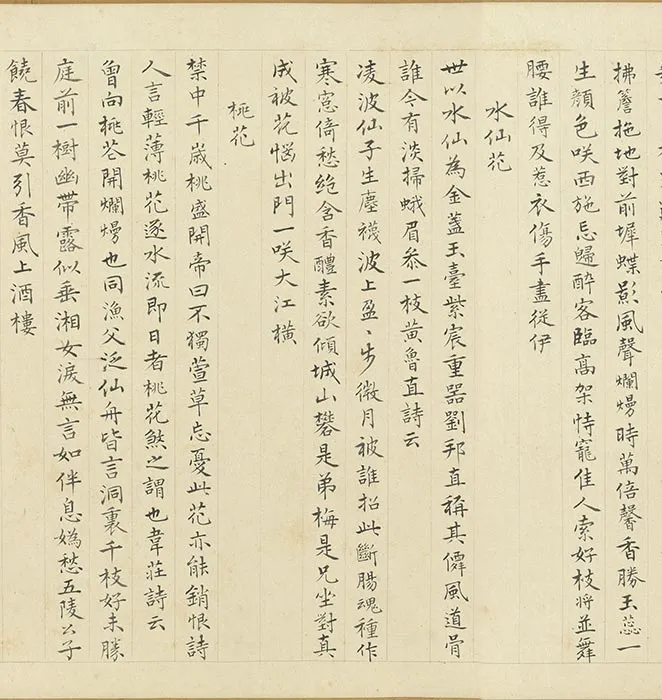 拂簷拖地對前墀蝶影風聲爛熳時萬倍馨香勝玉蕊一
生顏色咲西施忘歸醉客臨高架恃寵佳人索好枝將並舞
腰誰得及惹衣傷手盡從伊
水仙花
世以水仙為金盞玉臺紫宸重器劉邦直稱其僊風道骨
誰令有淡掃蛾眉叅一枝黃魯直詩云
凌波仙子生塵襪波上盈〻步微月被誰招此斷腸魂種作
寒窓倚愁絶含香醴素欲傾城山礬是弟梅是兄坐對真
成被花惱出門一咲大江橫
桃花
禁中千歲桃盛開帝曰不獨萱草忘憂此花亦能銷恨詩
人言輕薄桃花逐水流即日者桃花煞之謂也韋莊詩云
曾向桃花開爛熳也同漁父泛仙舟皆言洞裏千枝好未勝
庭前一樹幽帶露似垂湘女淚無言如伴息媯愁五陵公子
饒春恨莫引香風上酒樓